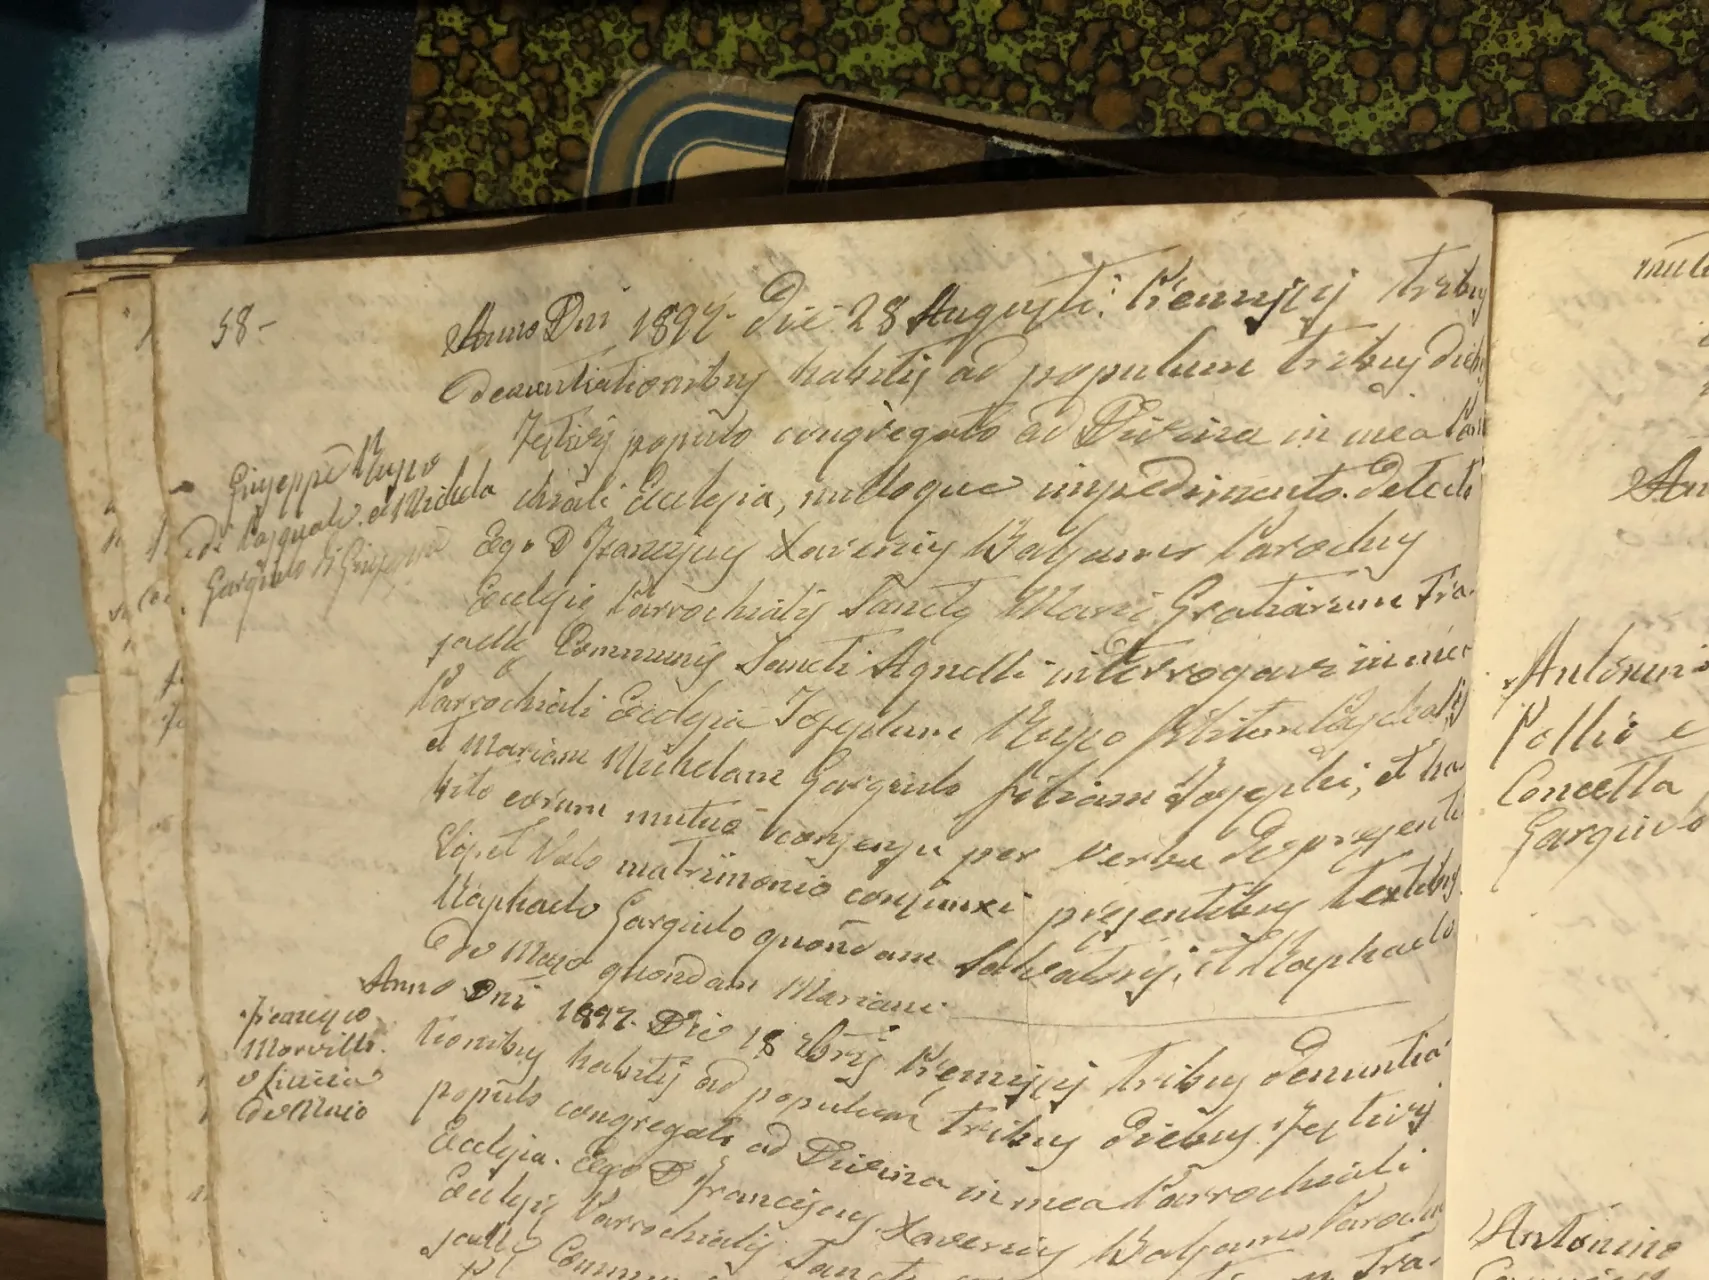 58-
Anno Dni 1897. Die 28 Augusti. Remissis tribus
denuntiationibus habitis ad populum tribus dieb
festivis populo congregato ad Divina in mea Par
Giuseppe Russo
di Pasquale e Michela
Gargiulo di Giuseppe
chiali Ecclesia, nulloque impedimento detecto
Ego D. Franciscus Xaverius Balsamo Parochus
Ecclesiæ Parrochialis Sanctæ Mariæ Gratiarum Tra-
saellæ Communis Sancti Agnelli interrogavi in mea
Parrochiali Ecclesia Josephum Russo filium Paschalis
et Mariam Michelam Gargiulo filiam Josephi, et ha-
bito eorum mutuo consensu per verba de presenti
Vis, et Volo matrimonio conjunxi presentibus testibus
Raphaele Gargiulo quondam Salvatoris, et Raphaele
de Majo quondam Mariani.
Francesco
Morvillo
e Luccia
de Maio
Anno Dni 1897. Die 18 Remissis tribus denuntia
tionibus habitis ad populum tribus diebus festivis
populo congregato ad Divina in mea Parrochiali
Ecclesia. Ego D. Franciscus Xaverius Balsamo Parochus
Ecclesiæ Parrochialis Sanctæ Tra-
saellæ Commun
mut
An
Antonin
Pollio e
Concetta
Gargiulo
Antonino